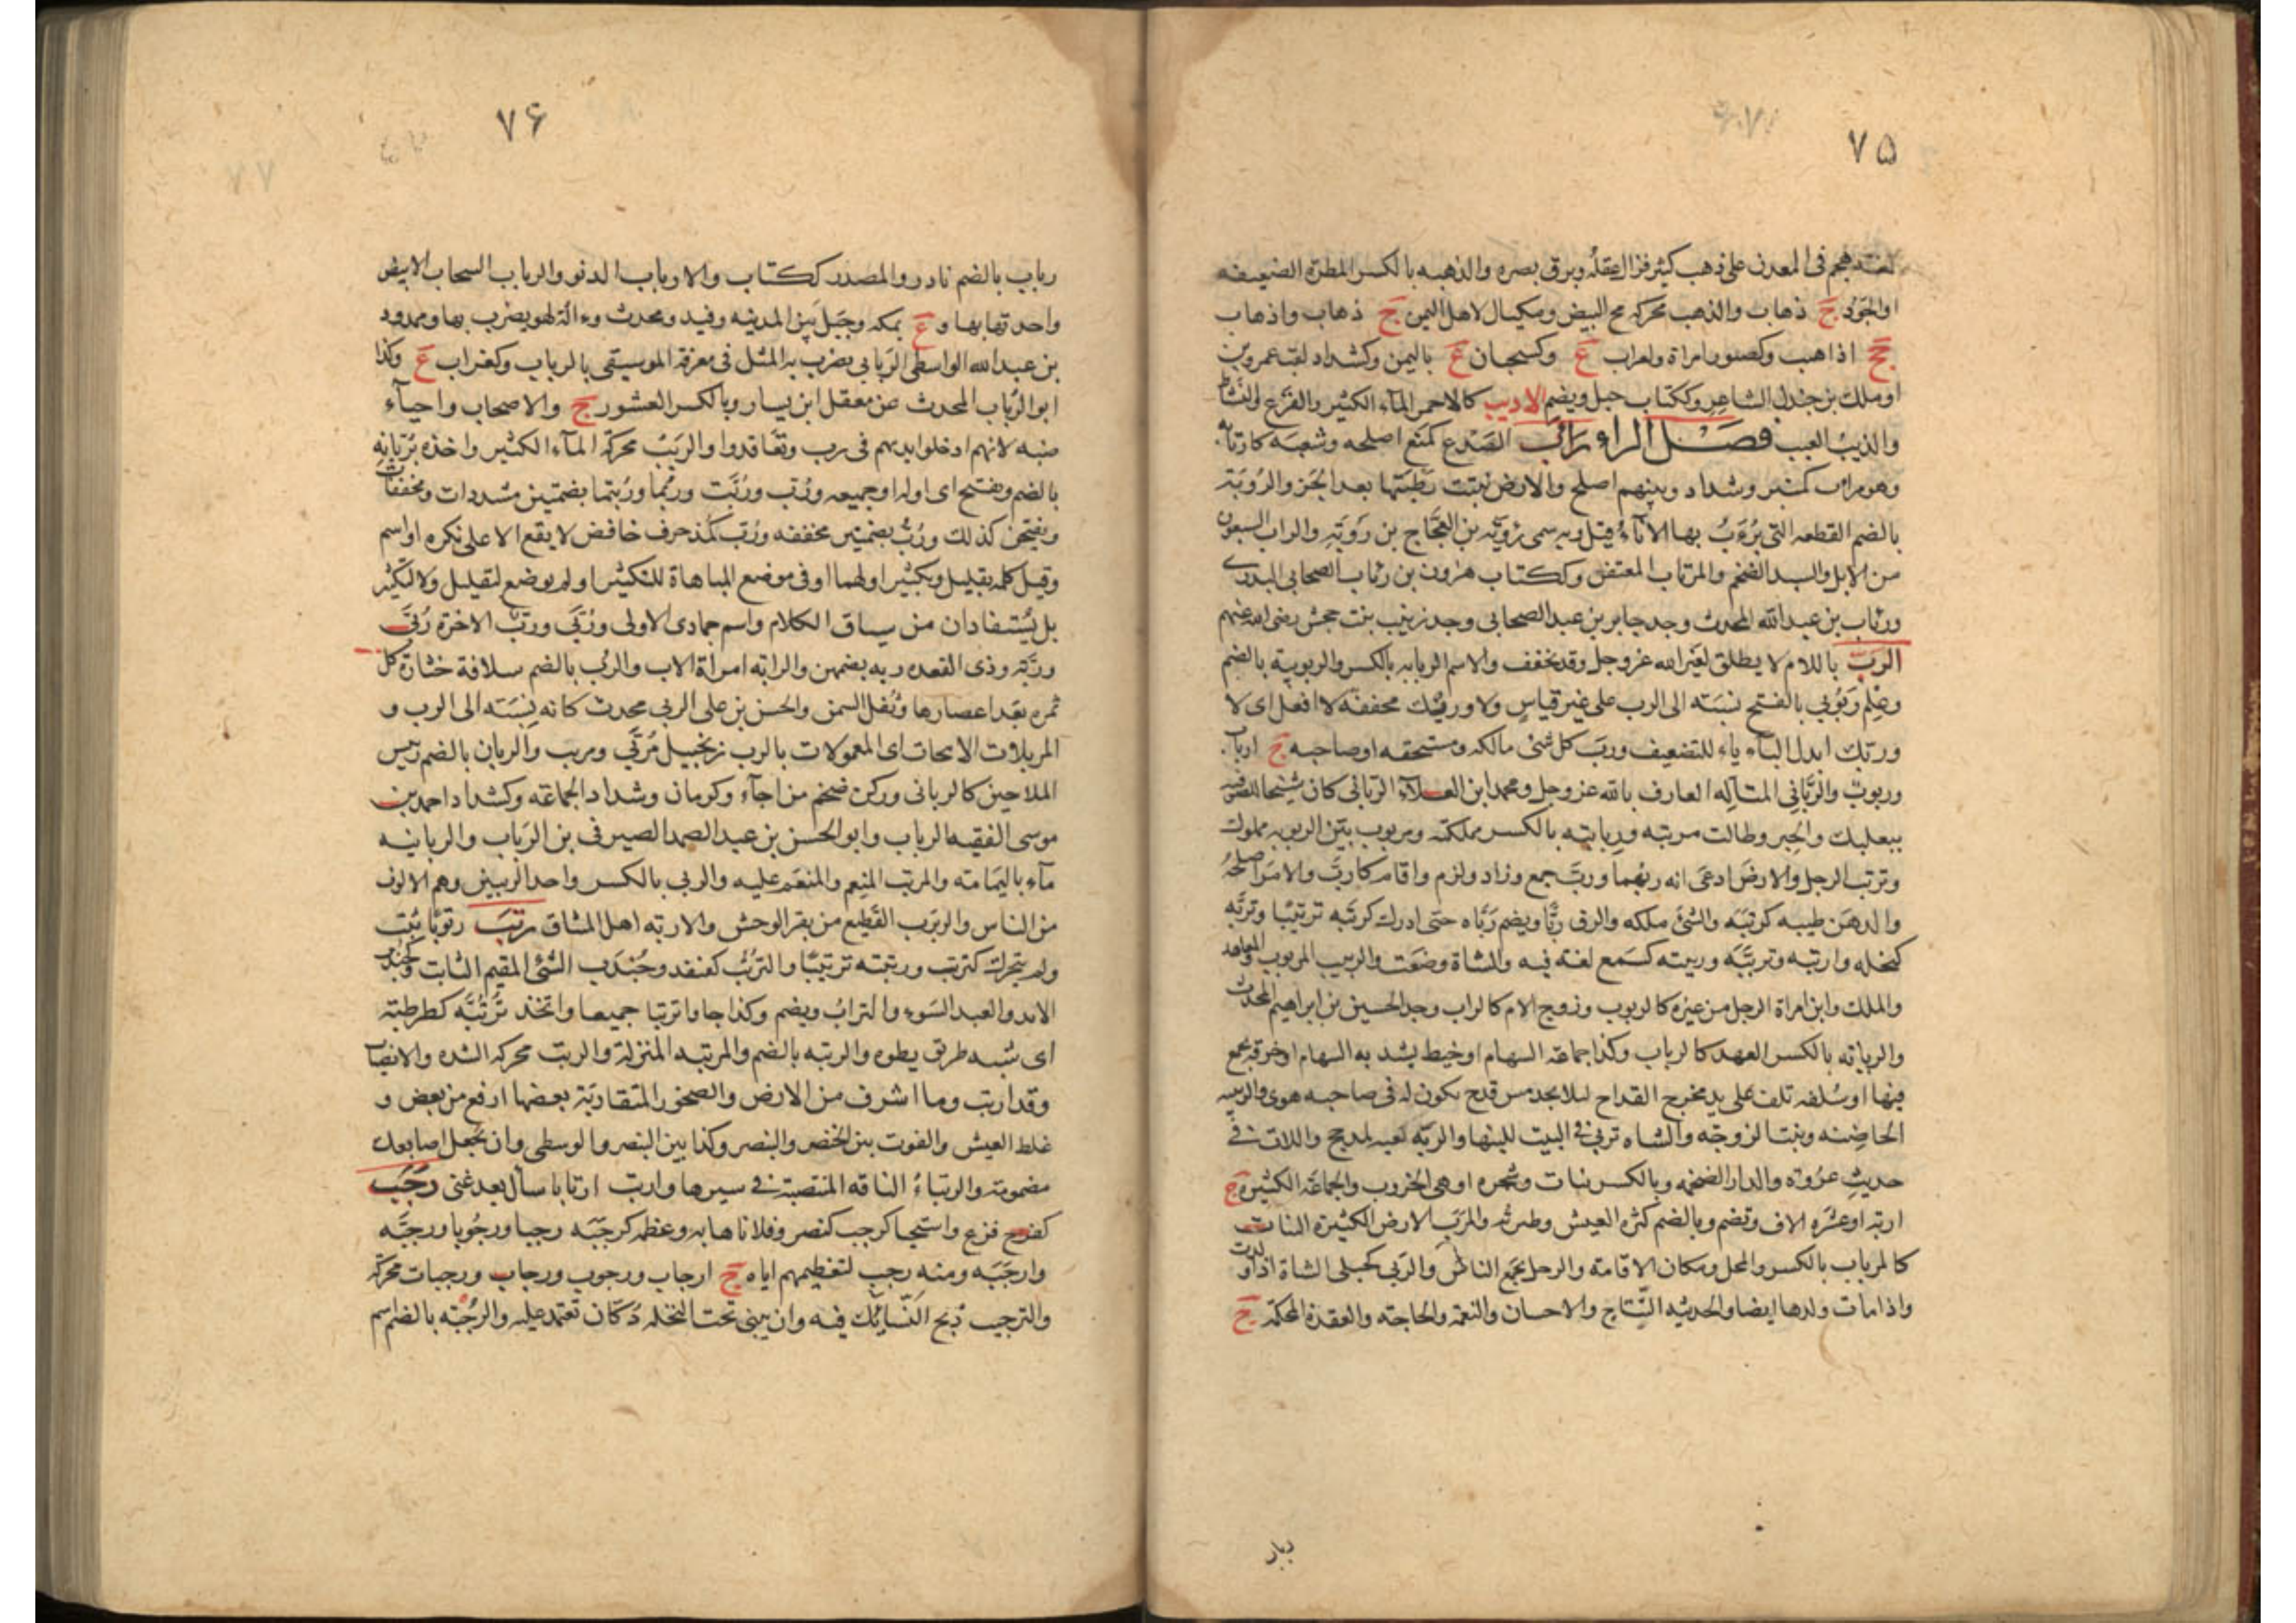 ۷۵
هجم فی المعدن علی ذهب کثیر فزال عقله وبرق بصره والذهبه بالکسر المطرة الضعیفه
اوالجَودُ ج ذهاب والذهب محرکه مح البیض ومکیال لاهل الیمن ج ذهاب واذهاب
جج اذاهب وکصبور امراة ولعراب ع وکسحبان ع بالیمن وکشداد لقب عمروبن
اوملک بن جندل الشاعر وککتاب جبل ویضم الاذیب کالاحمر المآء الکثیر والفزع والنشاط
والذیبُ العیب فصل الراء رَأبَ الصّدع کمنع اصلحه وشعبه کارتأبه
وهو مراب کمنبر وشداد وبینهم اصلح والارض نبتت رطبتها بعد الجَز والرُوبَة
بالضم القطعه التی یُرءَبُ بها الاناءُ قیل وبه سمی رؤبَة بن العجّاج بن رَوبَةِ والراب السبعون
من الابل والسید الضخم والمرتاب المعتفل وککتاب هرون بن رئاب الصحابی البدری
ورئاب بن عبدالله المحدث وجد جابر بن عبد الصحابی وجد زینب بنت جحش رضی الله عنهم
الربّ باللام لا یطلق لغیر الله عز وجل وقد یخفف والاسم الربابه بالکسر والربوبیة بالضم
وعِلم رَبُوبی بالفتح نسبَته الی الرب علی غیر قیاسٍ ولا وربیک مخففة لا افعل ای لا
وربک ابدل البآء یاء للتضعیف وربّ کل شئی مالکه ومستحقه اوصاحبه ج ارباب
وربوبٌ والرَبّانی المتألِه العارف بالله عز وجل ومحمد ابن العلآء الربانی کان شیخا للصوفیه
ببعلبک والحِبر وطالت مربته وربابته بالکسر مملکته ومربوب بیّن الربوبه مملوک
وتربّب الرجل والارض ادعی انه ربُهما وربّ جمع وزاد ولزم واقام کاربّ والامر اصلحهُ
والدهن طیبه کربّبَه والشئ ملکه والزق ربّا ویضم رَبّاه حتی ادرک کربّبه تربیبًا وتربّه
کتخله وارتبه وتربَّبَه وربیته کسَمع لغة فیه والشاة وضعَت والربیب المربوب والمعاهد
والملک وابن امراة الرجل من غیره کالربوب وزوج الام کالراب وجد الحسین بن ابراهیم المحدث
والربابه بالکسر العهد کالرباب وکذا جماعة السهام اوخیط یشد به السهام اوخرقة یجمع
فیها اوسُلفه تلف علی ید مخرج القداح لیلا یجد مس قدح یکون له فی صاحبه هوی والربیبه
الحاضِنه وبنت الزوجَه والشاه تربیٰ فی البیت للبنها والربّه کعبه لمذحج واللات فی
حدیثِ عُروَة والدار الضخمه وبالکسر نبات وشجره اوهی الخروب والجماعَة الکثیرة ج
اربّه اوعشَرة الاف وتضم وبالضم کثرة العیش وطرثه والمرَبّ الارض الکثیرة النبات
کالمرباب بالکسر والمحل ومکان الاقامة والرجل یجمع الناسَ والربی کحبلی الشاة اذا ولدت
واذا مات ولدها ایضا والحدیثه النِّتاج والاحسان والنعمة والحاجة والعقدة المحکمة ج
ربار
۷۶
رباب بالضم نادر والمصدر ککتاب والارباب الدنو والرباب السحاب الابیض
واحدتها بهاو ع بمکه وجبَل بین المدینه وفید ومحدث وءالة لهو یضرب بها وممدود
بن عبدالله الواسطی الرَبابی یضرب به المثل فی معرفة الموسیقی بالرباب وکغراب ع وکذا
ابوالرُباب المحدث عن معقل ابن یسار وبالکسر العشور ج والاصحاب واحیآء
ضبه لانهم ادخلوا ایدیهم فی رب وتعَاقدوا والربَبُ محرکة المآء الکثیر واخذه برُبانه
بالضم ویفتح ای اوله اوجمیعه ورُبّ ورُبَّت وربُّما ورُبتما بضمتین مشددات ومخففات
وبفتحِن کذلک ورُبُ بضمتین مخففه ورُب کمُذ حرف خافض لا یقع الا علی نکره اواسم
وقیل کلمة تقلیل وتکثیر اولهما اوفی موضع المباهاة للتکثیر اولم یوضع لتقلیل ولا لتکثیر
بل یُستفادان من سیاق الکلام واسم جمادی الاولی ورُبّی وربّ الاخرة رُبّی
ورُبّة وذی القعده ربه بضمهن والرابّه امراة الاب والرُب بالضم سلافة خثارَة کل
ثمره بعَد اعتصارها وثُفل السمن والحسن بن علی الربی محدث کانه نِسبَته الی الرب و
المرببات الانبجات ای المعمولات بالرب زنجبیل مُربّی ومربب والربان بالضم رَییس
الملاحین کالربانی ورکن ضخم من اجآء وکرمان وشداد الجماعَة وکشداد احمد بن
موسی الفقیه الرباب وابو الحسن بن عبد الصمد الصیرفی بن الرَباب والربانیه
مآء بالیَمامَة والمربّب المنعِم والمنعَم علیه والربی بالکسر واحد الربیین وهم الالوف
من الناس والربرَب القَطیع من بقر الوحش والاربه اهل المیثاق رتَبَ رتوبًا ثبت
ولم یتحرک کترتب ورتبته ترتیبًا والترتُب کقنفد وجُندَب الشئی المقیم الثابت وکجندب
الابد والعبد السَوء والتراب ویضم وکذا جاوا ترتبا جمیعا واتخذ تُرتُبَّه کطرطبّة
ای شبه طریق یطوه والرتبه بالضم والمرتبه المنزلة والرتبَ محرکه الشده والانصباب
وقد ارتب وما اشرف من الارض والصخور المتقاربَة بعضها ارفع من بعض و
غلظ العیش والفوت بین الخنصر والبنصر وکذا بین البنصر والوسطی وان تجعل اصابعک
مضمومة والرتباءُ الناقه المنتصبة فی سیرها وارتب ارتابا سأل بعد غنی رَجَبَ
کفرح فزع واستحیا کرجب کنصر وفلانا هابه وعظمه کرجّبَه رجبا ورجُوبا ورجّبَه
وارجَبَه ومنه رجب لتعظیمهم ایاه ج ارجاب ورجوب ورجاب ورجبات محرکة
والترجیب ذبح النّسائِک فیه وان یبنی تحت النخله دُکّان تعتمد علیه والرُجبَه بالضم اسم